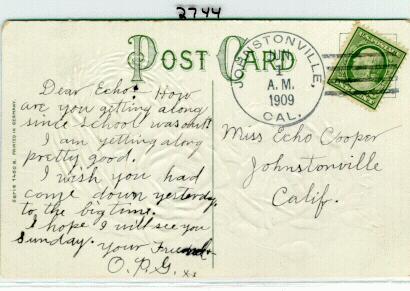 2744
POST CARD
JOHNSTONVILLE,
JUN
1
A.M.
1909
CAL.
Dear Echo: How
are you getting along
since School was out?
I am getting along
pretty good.
I wish you had
come down yesterday,
to the big time.
I hope I will see you
Sunday. Your Friend
O. P. G.
Miss Echo Cooper
Johnstonville
Calif.
PRINTED IN GERMANY.